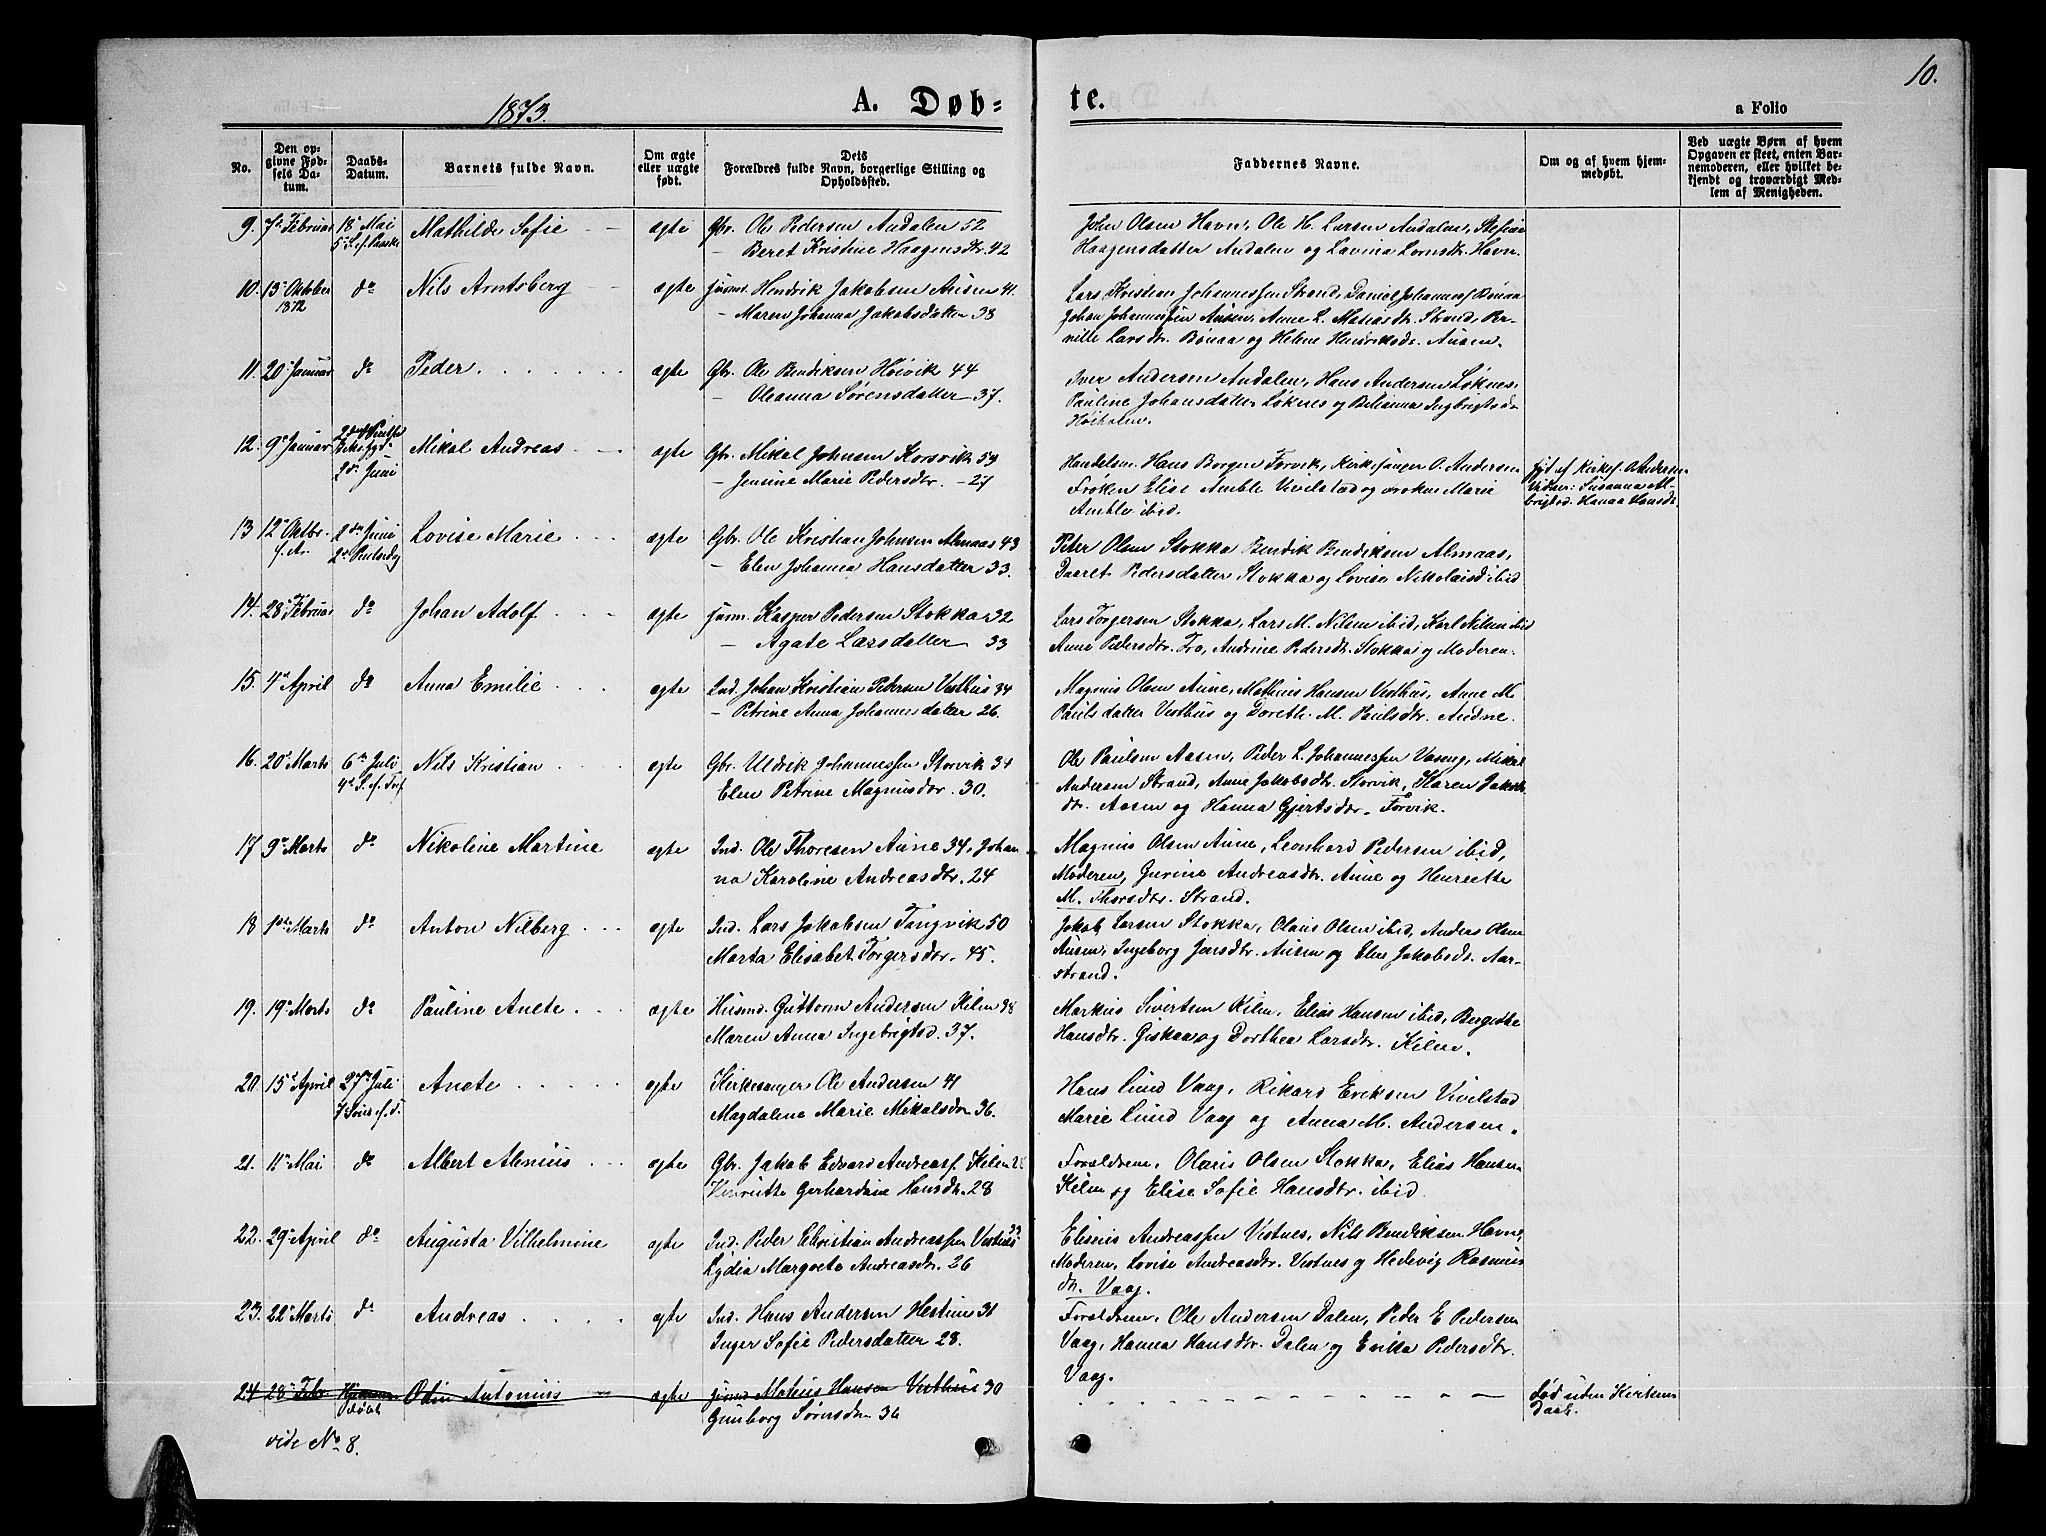 10.
1873.
A. Døb=
te.
a Folio
No.
Den op-
givne Fød-
sels Da-
tum.
Daabs-
Datum.
Barnets fulde Navn.
Om ægte
eller uægte
født.
Dets
Forældres fulde Navn, borgerlige Stilling og
Opholdsted.
Faddernes Navne.
Om og af hvem hjem-
medøbt.
Ved uægte Børn af hvem
Opgaven er skeet, enten Bar-
nemoderen, eller hvilket be-
kjendt og troværdigt Med-
lem af Menigheden.
9. 7de Februar 18de Mai Mathilde Sofie ægte Gbr. Ole Pedersen Andalen 52
5. S. ef. Paaske - Beret Kristine Haagensdtr. 42
John Olsen Havn, Ole H. Larsen Andalen, Stefine
Haagensdatter Andalen og Lavina Lornsdtr. Havn.
10. 15de Oktober do Nils Arntsberg ægte Husmd. Hendrik Jakobsen Ausen 41.
1872 - Maren Johanna Jakobsdatter 38
Lars Kristian Johannessen Strand, Daniel Johannesf. Bønaa
Johan Johannessen Ausen, Anne L. Matiasdtr. Strand, Per-
nille Larsdtr. Bønaa og Helene Henriksdtr. Ausen.
11. 20de Januar do Peder ægte Gbr. Ole Bendiksen Høivik 44
- Oleanna Sørensdatter 37.
Iver Andersen Andalen, Hans Andersen Løknes,
Pauline Johansdatter Løknes og Elianna Ingbrigtsdr
Høiholm.
12. 9de Januar 2den Juni Mikal Andreas ægte Gbr. Mikal Johnsen Korsvik 59
- Jensine Marie Pedersdtr. - 27
Handelsm. Hans Borgen Forvik, Kirkesanger O. Andersen
Frøken Elise Amble Vivelstad og Frøken Marie
Amble ibid.
Hjd. af Kirkes. O. Andersen
Vidner: Susanna In-
brigtsd. Hanna Hansdr.
13 12te Oktbr. 2den Juni Lovise Marie ægte Gbr. Ole Kristian Johnsen Almaas 43
f. A. - Elen Johanna Hansdatter 33.
Peter Olsen Stokka Bendik Bendiksen Almaas,
Daaret Pedersdatter Stokka og Lovise Nikolaisd. ibid
14. 28de Februar do Johan Adolf ægte Husm. Kasper Pedersen Stokka 32
- Agate Larsdatter 33
Lars Torgersen Stokka, Lars M. Nilsen ibid, Karl Nilsen ibid
Anne Pedersdtr. Tro, Andrine Pedersdtr. Stokka og Moderen.
15. 4de April do Anna Emilie ægte Ind. Johan Kristian Pedersen Vesthus 34
- Petrine Anna Johannesdatter 26.
Magnus Olsen Aune, Mathias Hansen Vesthus, Anne M.
Paulsdatter Vesthus og Doreth. M. Paulsdtr. Andne.
16. 20de Marts 6te Juli Nils Kristian ægte Gbr. Uldrik Johannessen Storvik 34
4de S. ef. Tref. Elen Petrine Magnusdtr. 30.
Ole Paulsen Aasen, Peder L. Johannessen Vaseng, Mikal
Andersen Strand, Anne Jakobsdtr. Storvik, Karen Jakobs
dtr. Aasen og Hanna Gjertsdtr. Forvik.
17 9de Marts do Nikoline Martine ægte Ind. Ole Thoresen Aune 34, Johan
na Karolene Andreasdtr. 24
Magnus Olsen Aune, Leonhard Pedersen ibid,
Moderen, Gurine Andreasdtr. Aune og Henrette
M. Thorsdtr. Strand.
18 1ste Marts do Anton Nilberg ægte Ind. Lars Jakobsen Tangvik 50
Marta Elisabet Torgersdtr. 45.
Jakob Larsen Stokka, Claus Olsen ibid, Anders Olsen
Ausen, Ingeborg Jensdtr. Ausen og Elen Jakobsdt. Aar-
strand.
19. 19de Marts do Pauline Anete ægte Husmd. Guttorm Andersen Kilen 38
Maren Anna Ingebrigtsd. 37.
Markus Sivertsen Kilen, Elias Hansen ibid, Bergitte
Hansdtr. Giskaa og Dorthea Larsdtr. Kilen.
20. 15de April 27de Juli Anete ægte Kirkesanger Ole Andersen 41
7 Sønd. ef. T. Magdalena Marie Mikalsdtr 36.
Hans Lund Vaag, Rikard Eriksen Vivelstad
Marie Lund Vaag og Anna M. Andersen.
21. 11te Mai do Albert Alenius ægte Gbr. Jakob Edvard Andreasf. Kilen
Henriette Gerhardine Hansdtr. 28
Forældrene, Olaus Olsen Stokka, Elias Hansen
Kilen og Elise Sofie Hansdtr. ibid.
22. 29de April do Augusta Vilhelmine ægte Ind. Peder Christian Andreassen Vesthus 23
Lydia Margrete Andreasdtr. 26
Elisæus Andreassen Vestnes, Nils Bendiksen Havn,
Moderen, Lovise Andreasdtr. Vestnes og Hedevig Rasmus
dtr. Vaag.
23. 22de Marts do Andreas ægte Ind. Hans Andersen Hestun 31
Inger Sofie Pedersdatter 28.
Forældrene, Ole Andersen Dalen, Peder E Pedersen
Vaag, Hanna Hansdtr. Dalen og Erika Pedersdtr.
Vaag.
24 28de Febr. Hjemme Odin Antonius ægte Husmd Matias Hansen Vesthus 30
døbt Gunborg Sørensdtr 36
Død uden Kirkens
Daab.
vide No 8.